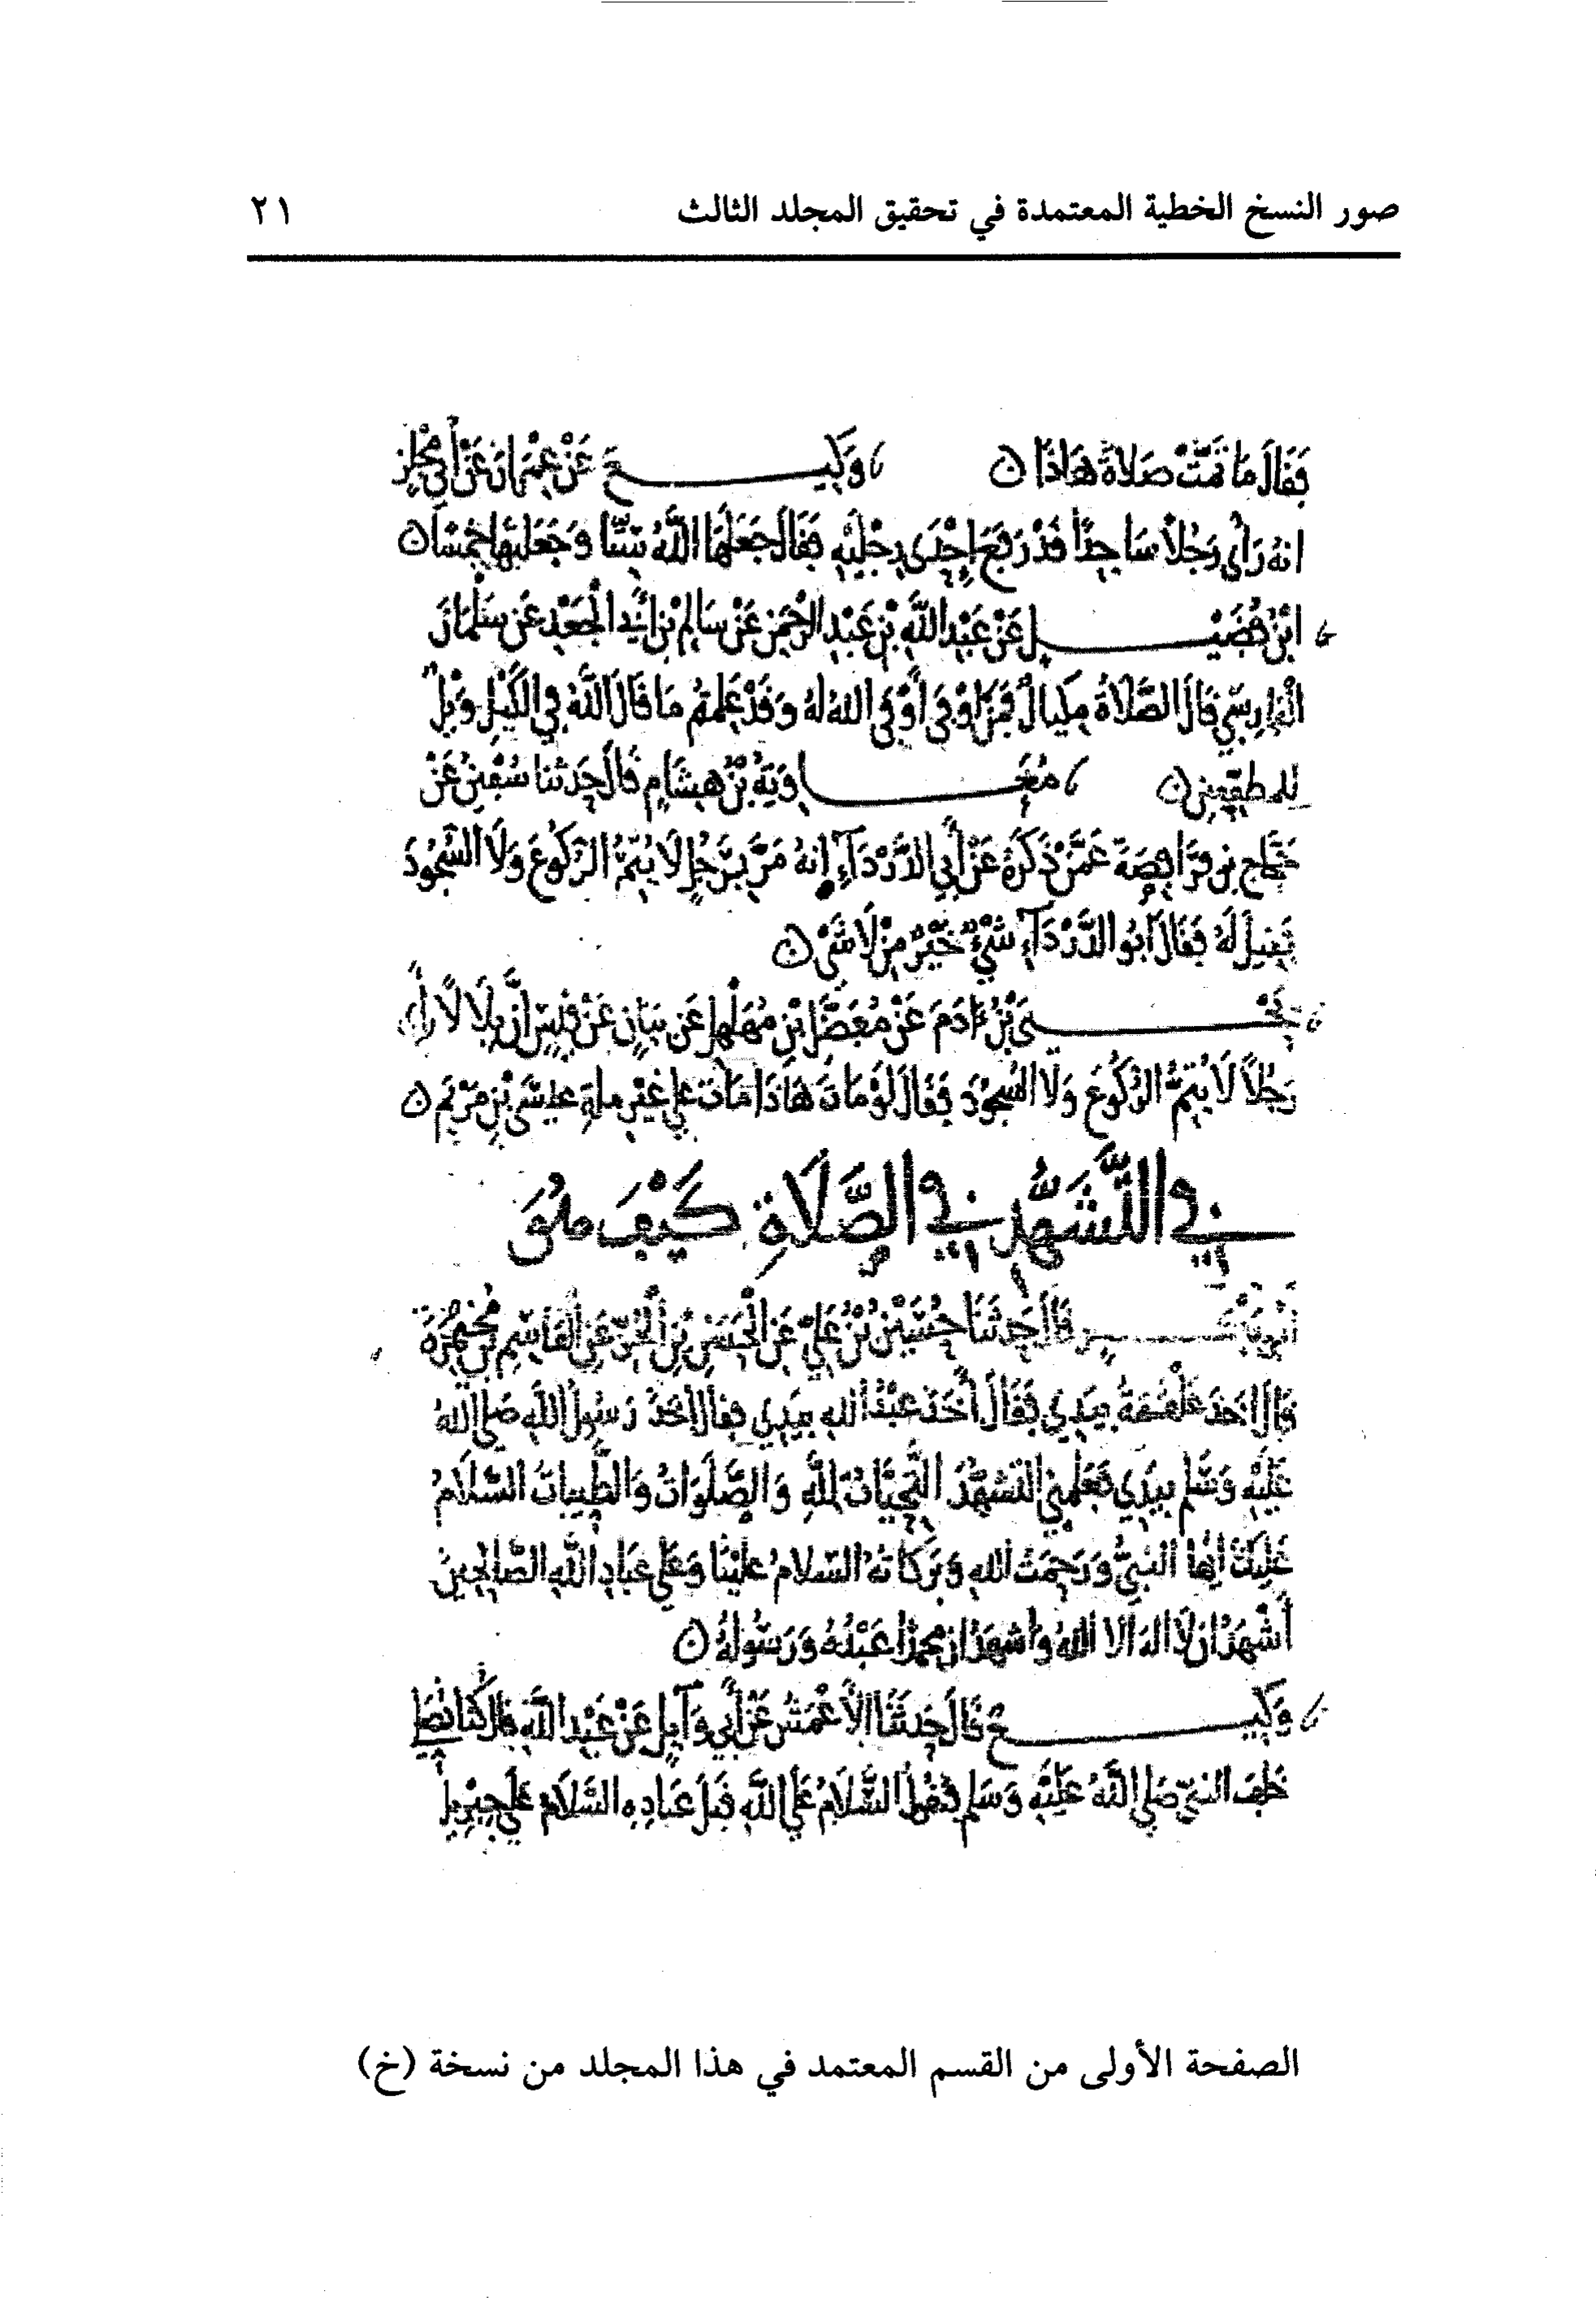 صور النسخ الخطية المعتمدة في تحقيق المجلد الثالث ٢١
فَقَالَ مَا تَمَّتْ صَلَاةُ هَاذَا وَكِيع عَنْ عِمْرَانَ عَنْ أَبِي مِجْلَزٍ
انهُ رَأَى رَجُلاً سَاجِدًا قَدْ رَفَعَ إِحْدَى رِجْلَيْهِ فَقَالَ جَعَلَهَا اللَّهُ سِتًّا وَجَعَلْتَهَا خَمْسًا
ابْنُ فُضَيْل عَنْ عَبْدِ اللَّهِ بْنِ عَبْدِ الرَّحْمَنِ عَنْ سَالِمِ بْنِ أَبِي الْجَعْدِ عَن سَلْمَانَ
الْفَارِسِيِّ قَالَ الصَّلَاةُ مِكْيَالٌ فَمَنْ اوْفَى أَوْفَى اللهُ لهُ وَقَدْ عَلِمْتُمْ مَا قَالَ اللَّهُ فِي الْكَيْلِ وَيْلٌ
لِلمطفِّفِينَ مُعَاوِيَةُ بْنُ هِشَامٍ قَالَ حَدثنا سُفْيَنُ عَنْ
حَجَّاجِ بن فُرَافِصَةَ عَمَّنْ ذَكَرَهُ عَنْ أَبِي الدَّرْدَآءِ إِنهُ مَرَّ بِرَجُلٍ لَا يُتِمُّ الرُّكُوعَ وَلَا السُّجُودَ
فَقِيلَ لَهُ فَقَالَ أَبُو الدَّرْدَآءِ شَيْءٌ خَيْرٌ مِنْ لَا شَيْ
يَحْيَى بْنُ ءَادَمَ عَنْ مُفَضَّلِ بْنِ مُهَلْهِلٍ عَن بَيَانٍ عَنْ قَيْسٍ أَنَّ بِلَالًا رَأَى
رَجُلاً لَا يُتِمُّ الرُّكُوعَ وَلَا السُّجُودَ فَقَالَ لَوْ مَاتَ هَاذَا مَاتَ عَلَى غَيْرِ مِلةِ عِيسَى بْنِ مَرْيَم
فِي التَّشَهُّدِ فِي الصَّلَاةِ كَيْفَ هُوَ
قَالَ حَدثَنَا حُسَيْنُ بْنُ عَلِيٍّ عَنِ الْحَسَنِ بْنِ الْحُرِّ عَنِ الْقَاسِمِ بْنِ مُخَيْمِرَةَ
قَالَ اخَذَ عَلْقَمَةُ بِيَدِي فَقَالَ أَخَذَ عَبْدُ اللهِ بِيَدِي فقال اخَذَ رَسُولُ اللَّهِ صَلى اللهُ
عَلَيْهِ وَسَلم بِيَدِي فَعَلمَنِي التشَهُّدَ التَّحِيَّاتُ لِلَّهِ وَالصَّلَوَاتُ وَالطَّيِّبَاتُ السَّلَامُ
عَلَيْكَ ايُّهَا النبيُّ وَرَحِمَتُ اللهِ وَبَرَكَاتهُ السَّلَامُ عَلَيْنَا وَعَلَى عِبَادِ اللَّهِ الصَّالِحِينَ
أَشْهَدُ ان لا اله الا اللهُ وَاشهَدُ ان محمدا عَبْدُهُ وَرَسُولهُ
وَكِيع قَالَ حَدثَنَا الأَعْمَشُ عَنْ أَبِي وَآئِلٍ عَنْ عَبْدِ اللَّهِ قال كُنَّا نصَلي
خَلفَ النبيّ صَلى اللَّهُ عَلَيْهِ وَسَلم فَنَقُولُ السَّلَامُ عَلَى اللَّهِ قَبْلَ عِبَادِهِ السَّلَامُ عَلَى جِبْرِيل
الصفحة الأولى من القسم المعتمد في هذا المجلد من نسخة (خ)